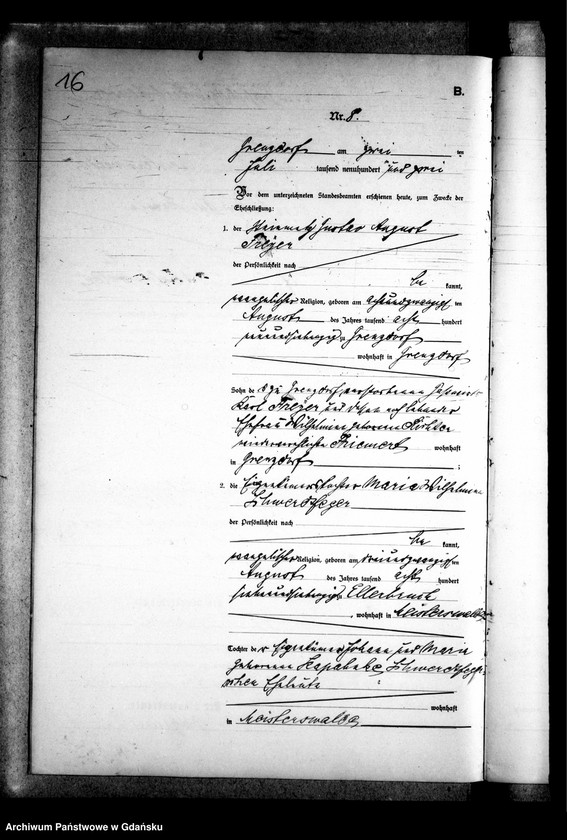 16
B.
Nr. 8.
Grenzdorf am zwei ten
Juli tausend neunhundert und zwei
Vor dem unterzeichneten Standesbeamten erschienen heute, zum Zwecke der
Eheschließung:
1. der Gustav August
Treyer
der Persönlichkeit nach
be kannt,
evangelischer Religion, geboren am achtundzwanzigs ten
August des Jahres tausend acht hundert
neunundsiebenzig zu Grenzdorf
wohnhaft in Grenzdorf
Sohn de s zu Grenzdorf verstorbenen
Karl Treyer und noch lebender
Ehefrau Wilhelmine geborene
wiederverehelichte wohnhaft
in Grenzdorf ;
2. die Eigentümertochter Maria Wilhelmine
Schwerdtfeger
der Persönlichkeit nach
be kannt,
evangelischer Religion, geboren am dreiundzwanzigs ten
August des Jahres tausend acht hundert
siebenundsiebenzig zu Ellerbruch
, wohnhaft in Meisterswalde
Tochter de r Eigentümer Johann und Maria
geborene Schwerdtfeger-
schen Eheleute
wohnhaft
in Meisterswalde
Archiwum Państwowe w Gdańsku